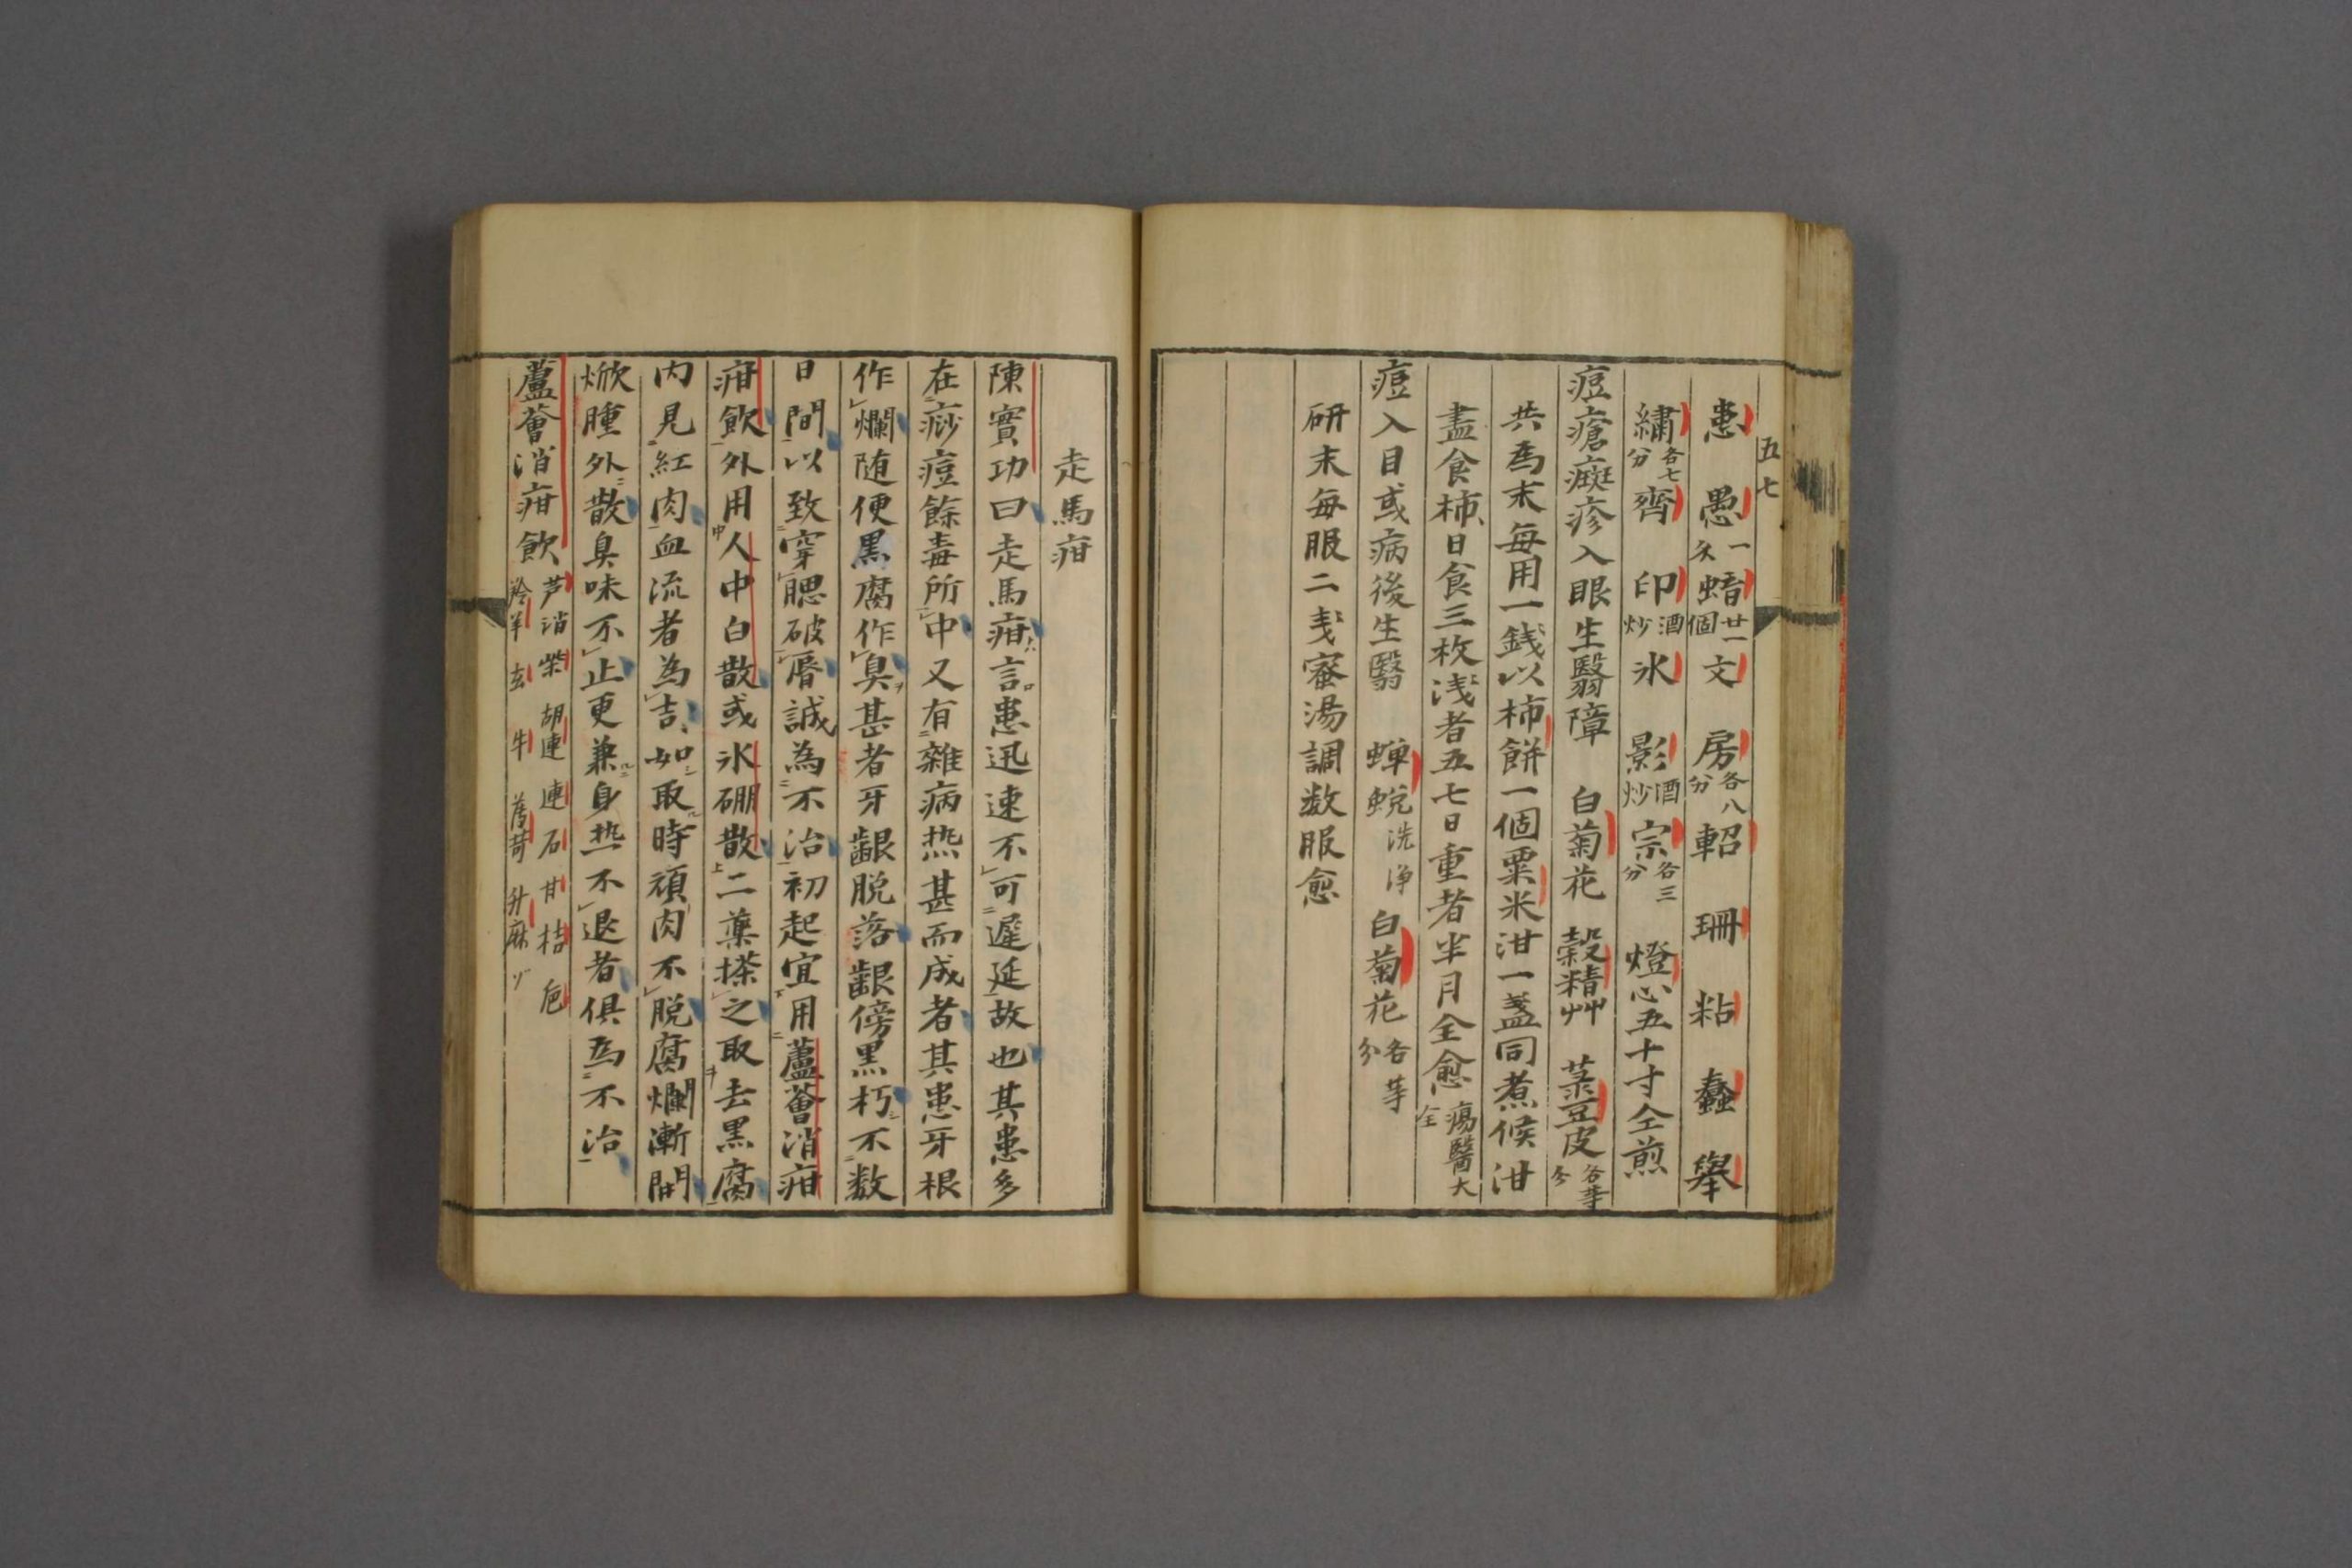 五七
患 愚 一 蝔 廿一個 文 房 各八分 軺 珊 粘 蠢 舉
繡 各七分 齊 印 酒炒 氷 影 酒炒 宗 各三分 燈心五十寸仝煎
痘瘡癍疹入眼生翳障 白菊花 穀精艸 菉豆皮 各等分
共為末每用一錢以柿餅一個粟米泔一盞同煮候泔
盡食柿日食三枚浅者五七日重者半月全愈 瘍醫大全
痘入目或病後生翳 蟬蛻 洗浄 白菊花 各等分
研末每服二戔蜜湯調数服愈
走馬疳
陳實功曰走馬疳言患迅速不可遲延故也其患多
在痧痘餘毒所中又有雜病热甚而成者其患牙根
作爛随便黒腐作臭甚者牙齦脱落齦傍黒朽不数
日間以致穿腮破唇誠為不治初起宜用蘆薈消疳
疳飲外用人中白散或氷硼散二薬搽之取去黒腐
内見紅肉血流者為吉如取時頑肉不脱腐爛漸開
焮腫外散臭味不止更兼身热不退者俱為不治
蘆薈消疳飲 芦 消 柴 胡連 連 石 甘 桔 梔
羚羊 玄 牛 薄苛 升麻